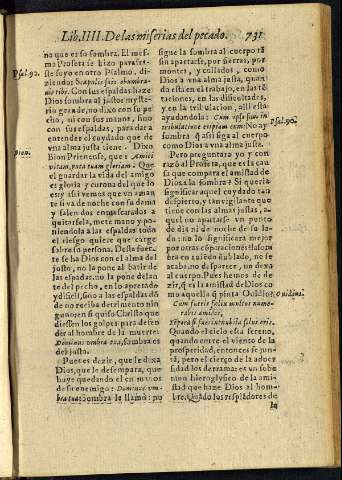 Lib. IIII. De las miserias del pecado. 731
no que es so sombra. El mes-
mo Profeta se hizo para es-
Psal. 90. te suyo en otro Psalmo, di-
ziendo: Scapulis suis obumbra-
uit tibi. Con sus espaldas haze
Dios sombra al justo: myste-
rio grande, no dixo con su pe-
cho, ni con sus manos, sino
con sus espaldas, para dar a
entender el cuydado que de
vna alma justa tiene. Dixo
Bion Prienense, que Amici
vitam, puta tuam gloriam: Que
el guardar la vida del amigo
es gloria y corona del que lo
es: y assi vemos que en aman
te si va de noche con su dama
y salen dos enmascarados a
quitarsela, mete mano y po-
niendola a las espaldas todo
el riesgo quiere que cargue
sobre su persona. Desta suer-
te se ha Dios con el alma del
justo, no la pone al batir de
las espadas: no la pone delan
te del pecho, en lo apretado
y dificil, sino a las espaldas dõ
de no reciba detrimento nin
guno: en si quiso Christo que
diessen los golpes para defen
der al hombre de la muerte:
Dominus vmbra tua, sombra es
del justo.
Pues es dezir, que le dexa
Dios, que le desempara, que
huye quedando el en manos
de sus enemigos: Dominus vm-
bra tua: Sombra le llamò: pu
sigue la sombra al cuerpo sĩ
sin apartarse, por sierras, por
montes, y collados, como
Dios a vna alma justa, quan-
do està en el trabajo, en las tẽ
taciones, en las dificultades,
y en la tribulacion, alli esta
ayudandola: Cum ipso sum in
tribulatione eripiam eum: No ay Psal. 90.
sombra q̃ assi siga al cuerpo
como Dios a vna alma justa.
Pero preguntara yo y con
razõ al Profeta, que es la cau
sa que compara el amistad de
Dios a la sombra? Si queria
significar aquel cuydado tan
despierto, y tan vigilante que
tiene con las almas justas, a-
quel no apartarse vn punto
de dia ni de noche de su la-
do: no lo significara mejor
por otras cõparaciones: la sõ
bra en quiẽdo ñublado, no se
acabo, no desparece, vn dexa
al cuerpo. Pues hemos de de
zir, q̃ es la amistad de Dios
como aquella q̃ pinta Ouidio: Ouidius.
Cum fueris felix multos nume-
rabis amicos,
Tẽpora si fuerint nubila solus eris.
Quando el cielo esta sereno,
quando corre el viento de la
prosperidad, entonces se jun-
tã, pero el cierço de la aduer
sidad los derrama: es vn sobe
rano hieroglyfico de la ami-
stad que haze Dios al hom-
bre. Quãdo los respladores de
la